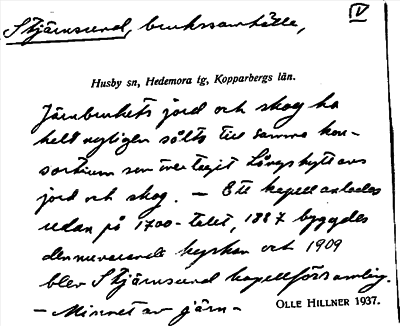 Stjärnsund, brukssamhälle,
IV
Husby sn, Hedemora tg, Kopparbergs län.
Järnbrukets jord och skog ha
helt nyligen sålts till samma kon-
sortium som övertagit Långshyttans
jord och skog. — Ett kapell anlades
redan på 1700-talet, 1887 byggdes
den nuvarande kyrkan och 1909
blev Stjärnsund kapellförsamling.
— Minnet av järn-
OLLE HILLNER 1937.